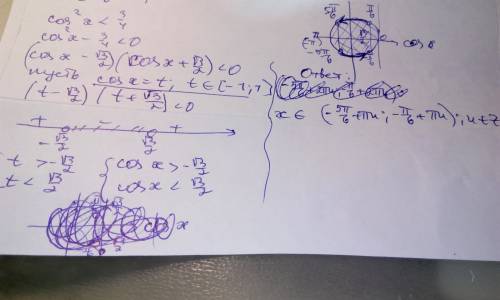 cos²x < 3/4
cos²x - 3/4 < 0
(cos x - √3/2)(cos x + √3/2) < 0
пусть cos x = t; t ∈ [-1, 1]
(t - √3/2)(t + √3/2) < 0
+ - +
-√3/2 √3/2
t > -√3/2
t < √3/2
{ cos x > -√3/2
cos x < √3/2
x
5π/6 π/6
-5π/6
Ответ:
x ∈ (-5π/6 + πn; -π/6 + πn); n ∈ Z